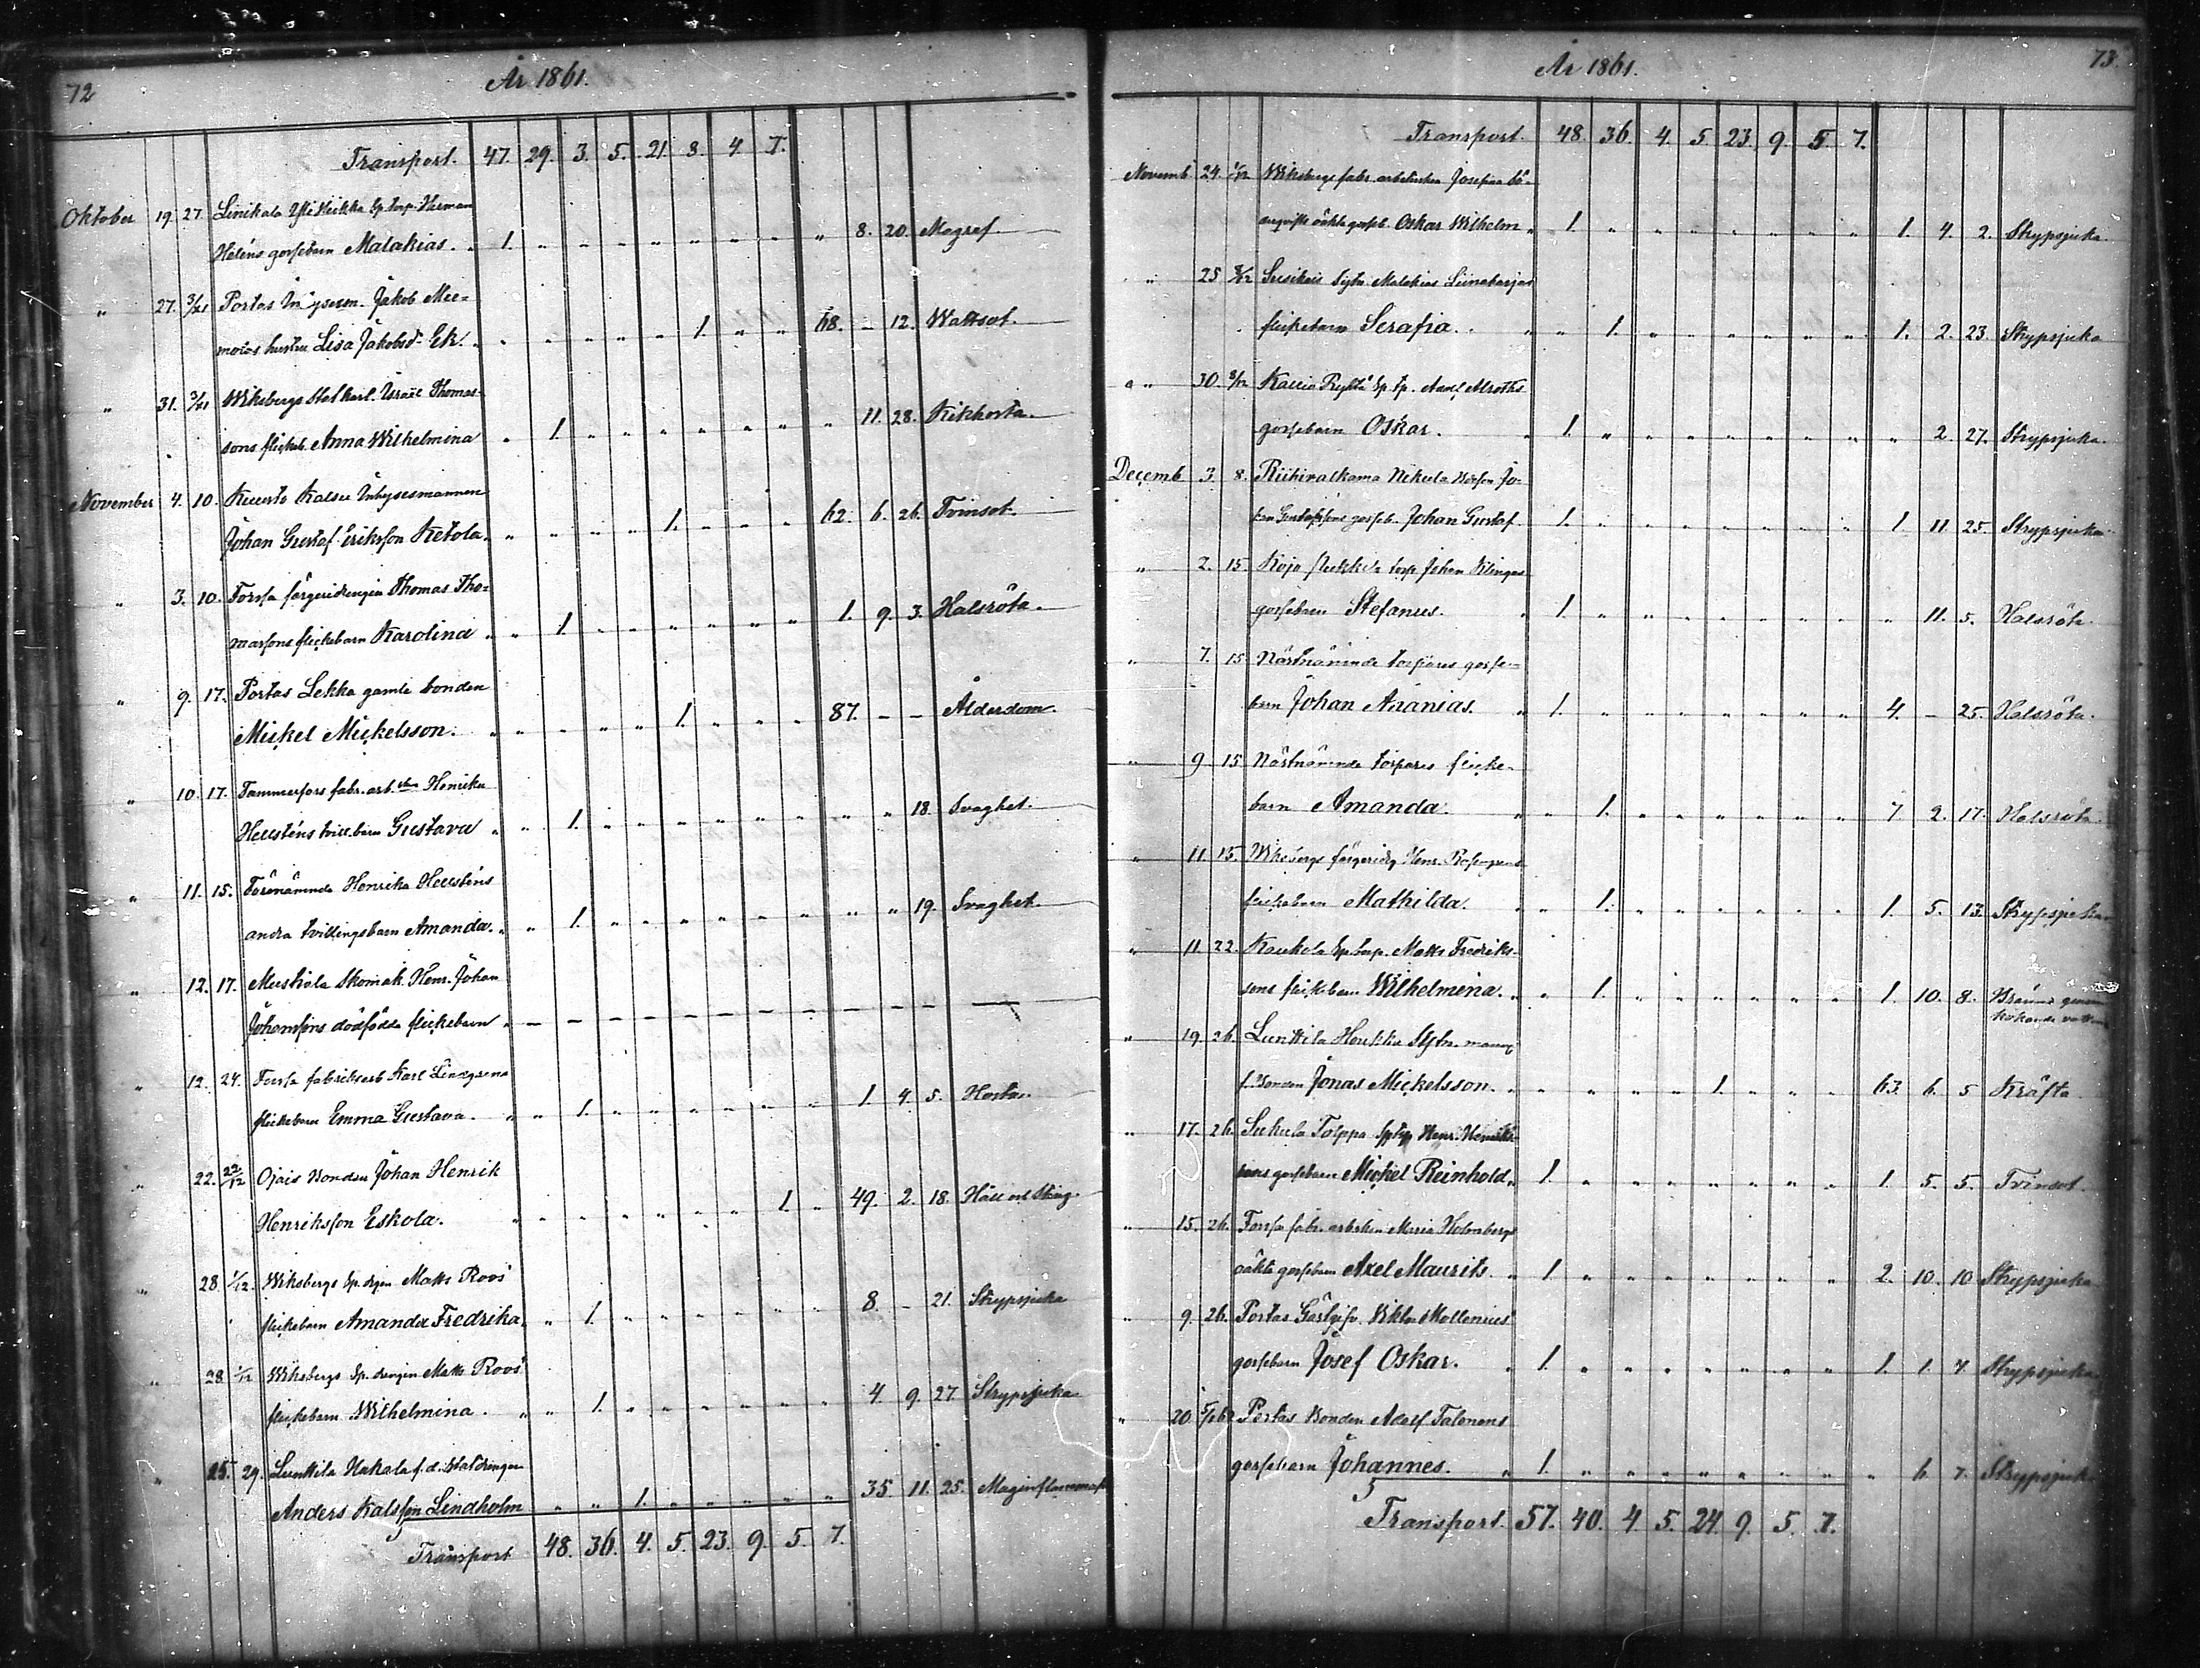 72
År 1861.
Transport. 47. 29. 3. 5. 21. 8. 4. 7.
Oktober 19. 27. Herman
Heléns gossebarn Malakias. " 1. " " " " " " " " 8. 20. Magref.
" 27. 3/11 Portas Jakob
hustru Lisa Jakobsd. Ek. " " " " " " 1. " " 68. – 12. Wattsot.
" 31. 3/11 Wiksbergs Statkarl. Israel Thomas-
sons flickeb. Anna Wilhelmina " 1. " " " " " " " 11. 28. Kikhosta.
November 4. 10. Kuusto Inhysesmannen
Johan Gustaf Eriksson Ketola. " " " " " 1. " " " 62. 6. 26. Tvinsot.
" 3. 10. Forssa färgeridrengen Thomas Tho-
massons flickebarn Karolina " " 1. " " " " " " 1. 9. 3. Halsröta.
" 9. 17. Portas Lekka gamle bonden
Mickel Mickelsson. " " " " " 1. " " " 87. – – Ålderdom.
" 10. 17. Tammerfors fabr. arb. Henrika
Hellsténs tvill. barn Gustava " " 1. " " " " " " " " 18. Svaghet.
" 11. 15. Förenämnde Henrika Hellsténs
andra tvillingsbarn Amanda. " " 1. " " " " " " " " 19. Svaghet.
" 12. 17. Mustiala Skomak. Henr. Johan
Johanssons dödfödda flickebarn " – – – – – – – – – – –
" 12. 24. Forssa fabriksarb Karl Lindgrens
flickebarn Emma Gustava. " " 1. " " " " " " 1. 4. 5. Hosta.
" 22. 22/12 Ojais Bonden Johan Henrik
Henriksson Eskola. " " " " " " " 1. " 49. 2. 18. Håll och Sting.
" 28. 1/12. Wiksbergs Sp. drgen Matts Roos'
flickebarn Amanda Fredrika. " " 1. " " " " " " 8. – 21. Strypsjuka
" 28. 1/12 Wiksbergs Sp. drengen Matts Roos'
flickebarn Wilhelmina. " " 1. " " " " " " 4. 9. 27. Strypsjuka
" 25. 29. Lunkila Hakala f. d. Statdrengen
Anders Kalsson Lindholm " " " 1. " " " " " 35. 11. 25.
Transport 48. 36. 4. 5. 23. 9. 5. 7.
73.
År 1861.
Transport. 48. 36. 4. 5. 23. 9. 5. 7.
Novemb 24. 1/12 Wiksbergs fabr. arbeterskan Josefina
oäkta gosseb. Oskar Wilhelm " 1. " " " " " " " " 1. 4. 2. Strypsjuka.
" 25 8/12 Malakias
flickebarn Serafia. " " 1. " " " " " " 1. 2. 23. Strypsjuka
" 30. 8/12 Axel Alroths
gossebarn Oskar. " 1. " " " " " " " " 2. 27. Strypsjuka.
Decemb 3. 8. Nikula Jo-
han Gustafssons gosseb. Johan Gustaf 1. " " " " " " " 1 11 25. Strypsjuka
" 2. 15. Kojo torp. Johan
gossebarn Stefanus. " 1. " " " " " " " " 11. 5. Halsröta.
" 7. 15 Nästnämnde torpares gosse-
barn Johan Ananias. " 1. " " " " " " " 4. – 25. Halsröta.
" 9 15 Nästnämnde torpares flicke-
barn Amanda. " " 1. " " " " " " 7 2. 17. Halsröta.
" 11. 15. Wiksbergs färgeridrg Henr. Rosengrens
flickebarn Mathilda. " " 1. " " " " " " 1. 5. 13. Strypsjuka
" 11. 22. Kaukola Sp. torp. Matts Fredriks-
sons flickebarn Wilhelmina. " " 1. " " " " " " 1. 10. 8. Bränns genom
kokande vatten
" 19. 26. Lunkila
f. Bonden Jonas Mickelsson. " " " " " 1. " " " 63. 6. 5 Kräfta.
" 17. 26. Sukula Tolppa Henr. Henriks-
sons gossebarn Mickel Reinhold. 1. " " " " " " " 1. 5. 5. Tvinsot.
" 15. 26. Forssa fabr. arbrskan Maria Holmbergs
oäkta gossebarn Axel Maurits. " 1. " " " " " " " 2. 10. 10 Strypsjuka
" 9. 26. Portas Gästgifv. Viktor Mollenius'
gossebarn Josef Oskar. " 1. " " " " " " " 1. 1. 7. Strypsjuka
" 20. 5/1 62 Portas Bonden Adolf Talonens
gossebarn Johannes. " 1. " " " " " " " " 6. 7. Strypsjuka
Transport. 57. 40. 4. 5. 24. 9. 5. 7.